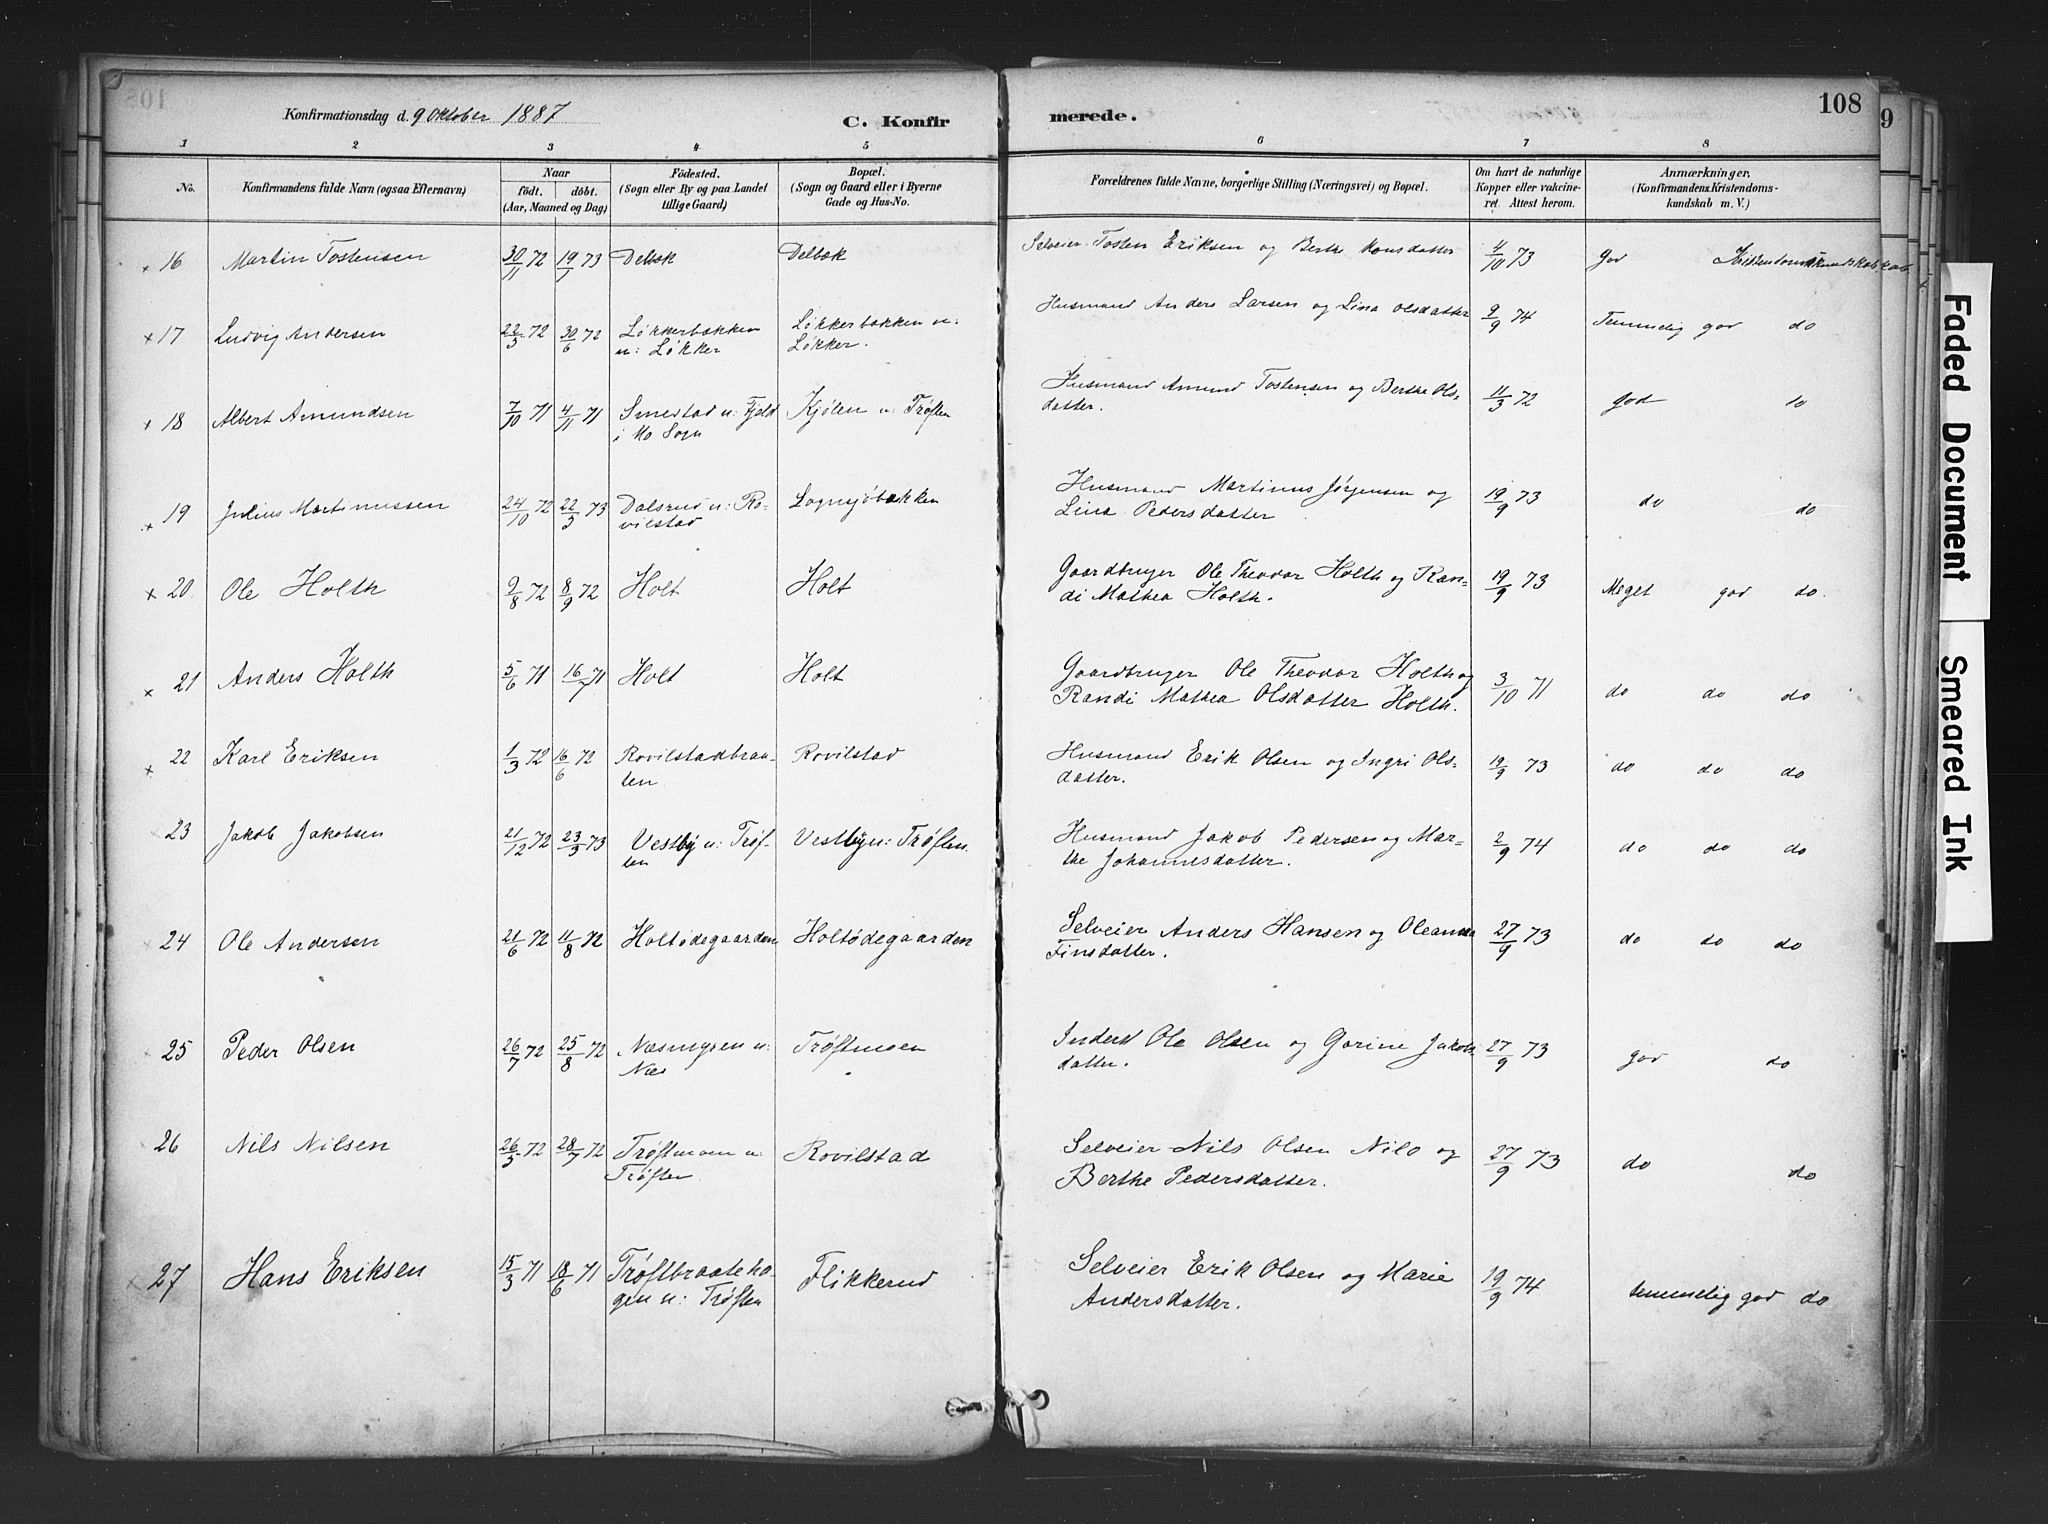 108
Konfirmationsdag d. 9 Oktober 1887
C. Konfir
merede.
1 2 3 4 5 6 7 8
No. Konfirmandens fulde Navn (ogsaa Efternavn)
Naar
födt. döbt.
(Aar, Maaned og Dag)
Födested.
(Sogn eller By og paa Landet
tillige Gaard)
Bopæl.
(Sogn og Gaard eller i Byerne
Gade og Hus-No.
Forældrenes fulde Navne, borgerlige Stilling (Næringsvei) og Bopæl.
Om havt de naturlige
Kopper eller vakcine-
ret. Attest herom.
Anmærkninger,
(Konfirmandens Kristendoms-
kundskab m. V.)
x 16 Martin Tostensen 30/11 72 19/1 73 Delbæk Delbæk Selveier Tosten Eriksen og Berthe Hansdatter 4/10 73 god Kristendomskundskab
x 17 Ludvig Andersen 22/5 72 30/6 72 Løkkerbækken Løkkerbækken u: Husmand Anders Larsen og Lina Olsdatter 9/9 74 Temmelig god do
u: Løkker Løkker.
x 18 Albert Amundsen 7/10 71 4/11 71 Smestad u: Fjeld Kjølen u: Trøften Husmand Amund Tostensen og Berthe Ols- 11/3 72 god do
i Mo Sogn datter.
x 19 Julius Martinussen 24/10 72 22/3 73 Dalsrud u: Ro- Sognsjøbækken Husmand Martinus Jørgensen og 19/9 73 do do
vilstad Lina Pedersdatter
x 20 Ole Holth 9/8 72 8/9 72 Holt Holt Gaardbruger Ole Theodor Holth og Ran- 19/9 73 Meget god do.
di Mathea Holth.
x 21 Anders Holth 5/6 71 16/7 71 Holt Holt Gaardbruger Ole Theodor Holth og 3/10 71 do do do
Randi Mathea Olsdatter Holth.
x 22 Karl Eriksen 1/3 72 16/6 72 Rovilstadbraa- Rovilstad Husmand Erik Olsen og Ingri Ols- 19/9 73 do do do
ten datter.
x 23 Jakob Jakobsen 21/12 72 23/3 73 Vestby u: Trøf- Vestby u: Trøften. Husmand Jakob Pedersen og Mar- 2/9 74 do do do
ten the Johannesdatter.
x 24 Ole Andersen 21/6 72 11/8 72 Holtødegaarden Holtødegaarden Selveier Anders Hansen og Oleanna 27/9 73 do do do
Finsdatter.
x 25 Peder Olsen 26/7 72 25/8 72 Næsmyren u: Trøftmoen Inderst Ole Olsen og Gorine Jakobs 27/9 73 god do
Næs datter.
x 26 Nils Nilsen 26/5 72 28/7 72 Trøftmoen u: Rovilstad Selveier Nils Olsen Nilo og 27/9 73 do do
Trøften. Berthe Pedersdatter.
x 27 Hans Eriksen 15/3 71 18/6 71 Trøftbraateha- Flikkerud Selveier Erik Olsen og Marie 19/9 74 temmelig god do
gen u: Trøften Andersdatter.
9
Faded Document
Smeared Ink